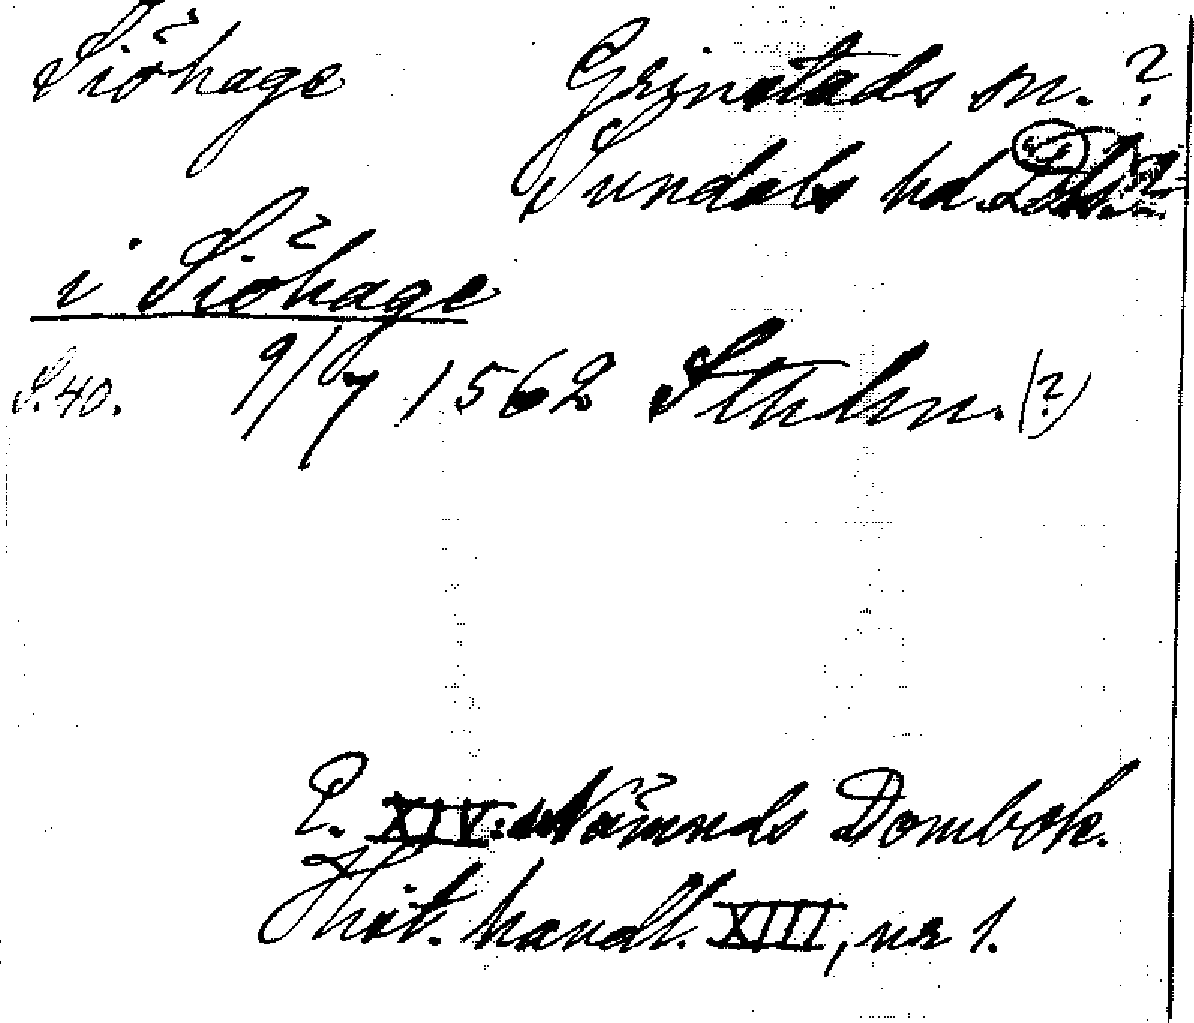 Siöhage Grinstads sn. ?
Sundals hd. Dls. ?
i Siöhage
S. 40. 9/7 1562 Sthlm. (?)
E. XIV:s Nämnds Dombok.
Hist. handl. XIII, nr 1.